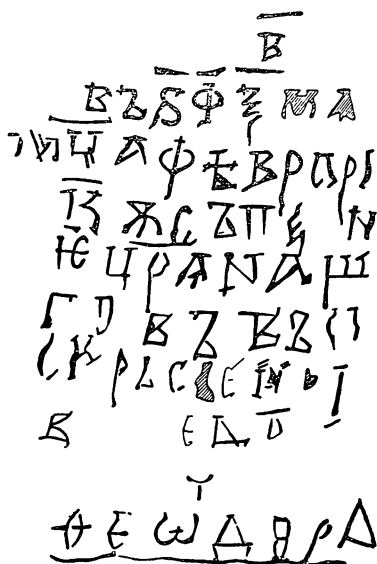 В
ВЪ ЅФѮ МА
МЦА ФЕВРАРІ
К ЖСЪПЕ N
Ѥ ЦРАNАШ
Г ВЪ ВЪ
СКРЬС ЕNЬІ
В ЕД
ѲЕѠДѦРА